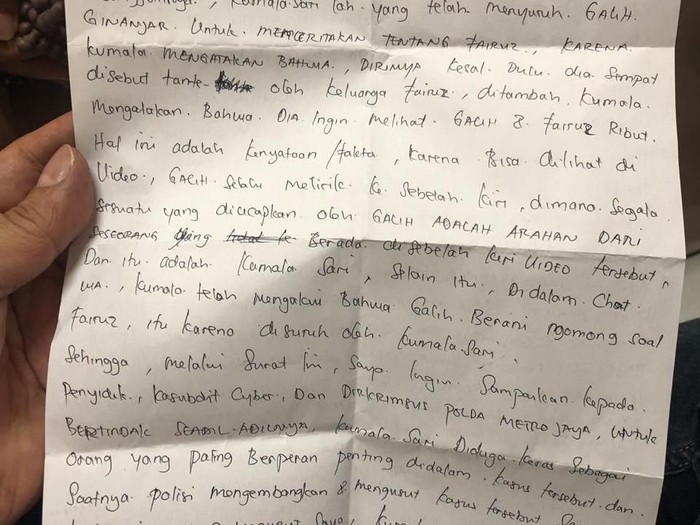 , Kumala Sari lah. yang telah menyuruh. GALIH.
GINANJAR. Untuk. MENCERITAKAN TENTANG FAIRUZ., KARENA.
Kumala. MENGATAKAN BAHWA., DIRINYA Kesal. Dulu. dia. Sempat
disebut tante- oleh Keluarga Fairuz., ditambah. Kumala.
Mengatakan. Bahwa. DIA. Ingin. Melihat. GALIH & Fairuz Ribut.
Hal ini adalah Kenyataan /fakta, karena. Bisa. dilihat di
Video., GALIH. Selalu Melirik. Ke. Sebelah. Kiri, dimana. Segala.
Sesuatu yang diucapkan. oloh GALIH ADALAH ARAHAN DARI
SESEORANG yang Berada. di sebelah kiri VIDEO tersebut,
Dan itu. adalah. Kumala Sari, Selain itu., Didalam. Chat.
WA., Kumala. telah Mengakui Bahwa Galih. Berani ngomong soal
Fairuz, itu karena disuruh oloh. Kumala.Sari.
Sehingga, melalui Surat Ini, Saya. Ingin. Sampaikan. Kepada.
Penyidik., Kasubdit Cyber., Dan DIRKRIMSUS POLDA METRO JAYA, UNTUK
BERTINDAK SEADIL-ADILNYA, Kumala Sari Diduga. Keras Sebagai
Orang yang paling Berperan penting didalam. kasus tersebut. dan.
Saatnya. polisi mengembangkan & mengusut kasus tersebut